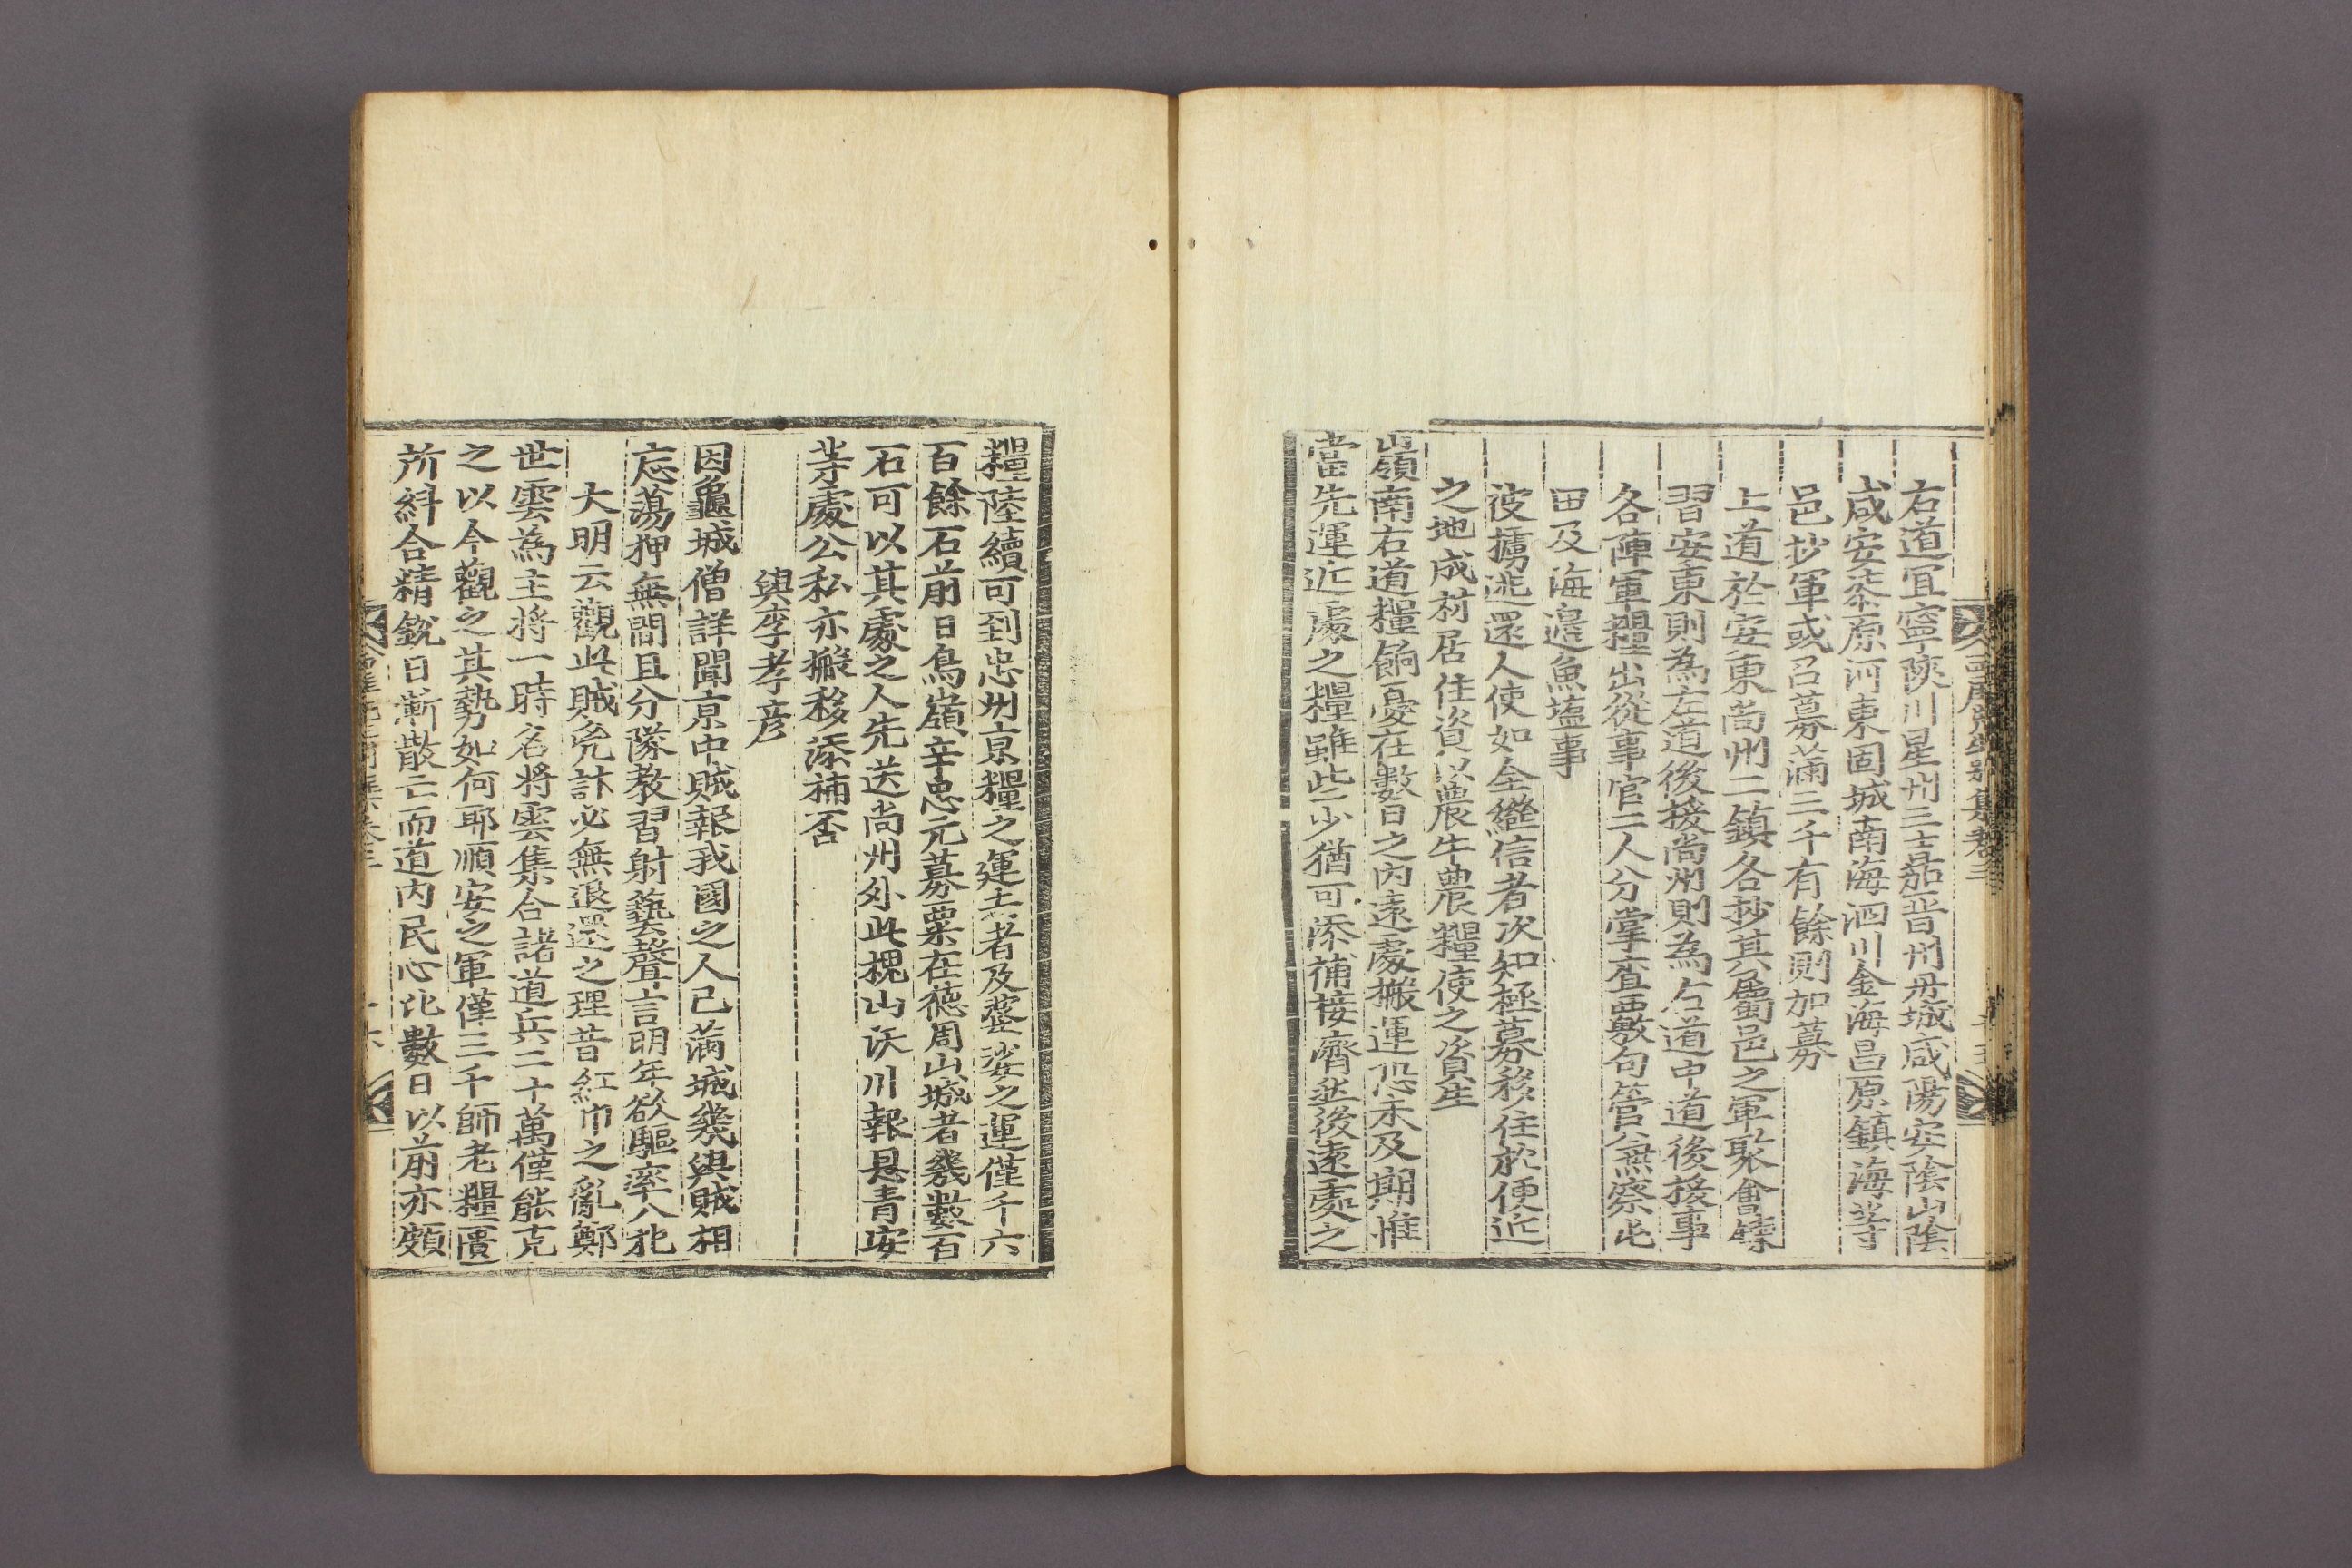 右道宜寧陜川星州三嘉晋州丹城咸陽安陰山陰
咸安柒原河東固城南海泗川金海昌原鎮海等
邑抄軍或召募滿三千有餘則加募
上道於安東尚州二鎮各抄其屬邑之軍聚會鍊
習安東則為左道後援尚州則為右道中道後援事
各陣軍糧出從事官二人分掌査覈句管兼察屯
田及海邊魚塩事
彼擄逃還人使如全繼信者次知極募移住於便近
之地成村居住資以農牛農糧使之資生
嶺南右道糧餉憂在數日之內遠處搬運恐未及期惟
當先運近處之糧雖些少猶可添補接濟然後遠處之
糧陸續可到忠州京糧之運去者及婺娑之運僅千六
百餘石前日鳥嶺辛忠元募粟在德周山城者幾數百
石可以其處之人先送尚州外此槐山沃川報恩青安
等處公私亦搬移添補否
與李孝彦
因龜城僧詳聞京中賊報我國之人已滿城幾與賊相
忘蕩狎無間且分隊教習射藝聲言明年欲驅率八北
大明云觀此賊兇計必無退還之理昔紅巾之亂鄭
世雲為主將一時名將雲集合諸道兵二十萬僅能克
之以今觀之其勢如何耶順安之軍僅三千師老糧匱
所糾合精銳日漸散亡而道內民心此數日以前亦頗